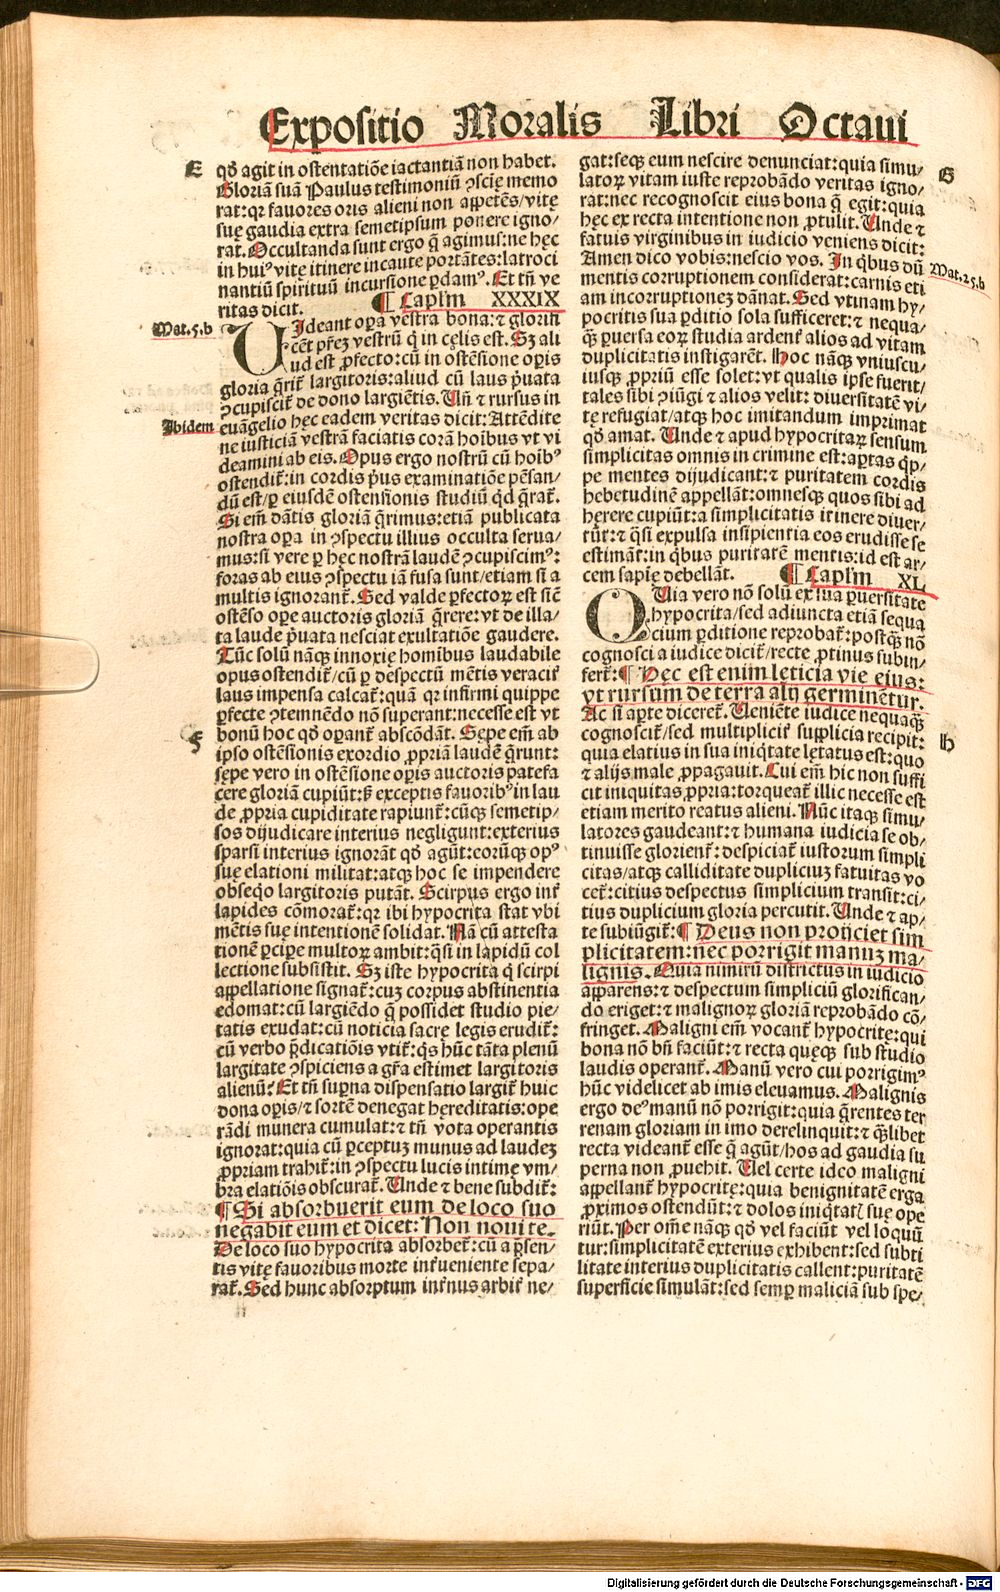 Expositio Moralis Libri Octaui
E
qd̄ agit in ostentatiōe iactantiā non habet.
Gloriā suā Paulus testimoniū ꝯsciẽ memo
rat: qꝛ fauores oris alieni non appetẽs/vitę
suę gaudia extra semetipsum ponere igno/
rat. Occultanda sunt ergo q̄ agimus: ne hęc
in huiꝰ vitę itinere incaute portātes: latroci
nantiū spirituū incursione ꝑdamꝰ. Et tn̄ ve
ritas dicit. ¶ Capl̓m XXXIX
Mat.5.b
VIdeant oꝑa vestra bona: ⁊ glorifi
cēt pr̄ez vestrū q̄ in cęlis est. Sꝫ ali
ud est ꝓfecto: cū in ostēsione oꝑis
gloria q̄rit̄ largitoris: aliud cū laus p̄uata
ꝯcupiscit̄ de dono largiētis. Vn̄ ⁊ rursus in
Ibidem
euāgelio hęc eadem veritas dicit: Attēdite
ne iusticiā vestrā faciatis corā hoībus vt vi
deamini ab eis. Opus ergo nostrū cū hoibꝰ
ostendit̄: in cordis p̄us examinatiōe pēsan/
dū est/ꝑ eiusdē ostensionis studiū qd̄ q̄rat̄.
Si em̄ dātis gloriā q̄rimus: etiā publicata
nostra oꝑa in ꝯspectu illius occulta serua/
mus: si vere ꝑ hęc nostrā laudē ꝯcupiscimꝰ:
foras ab eius ꝯspectu iā fusa sunt/etiam si a
multis ignorant̄. Sed valde ꝑfectoꝝ est sic̄
ostēso oꝑe auctoris gloriā q̄rere: vt de illa/
ta laude p̄uata nesciat exultatiōe gaudere.
Tūc solū nāqꝫ innoxię homībus laudabile
opus ostendit̄/cū ꝑ despectū mētis veracit̓
laus impensa calcat̄: quā qꝛ infirmi quippe
ꝑfecte ꝯtemnēdo nō superant: necesse est vt
bonū hoc qd̄ oꝑant̄ abscōdāt. Sępe em̄ ab
F
ipso ostēsionis exordio ꝓpriā laudē q̄runt:
sępe vero in ostēsione oꝑis auctoris patefa
cere gloriā cupiūt: sꝫ exceptis fauoribꝰ in lau
de ꝓpria cupiditate rapiunt̄: cūqꝫ semetip/
sos dijudicare interius negligunt: exterius
sparsi interius ignorāt qd̄ agūt: eorūqꝫ opꝰ
suę elationi militat: atqꝫ hoc se impendere
obseq̓o largitoris putāt. Scirpus ergo int̓
lapides cōmorat̄: qꝛ ibi hypocrita stat vbi
mētis suę intentionē solidat. Nā cū attesta
tionē ꝑcipe multoꝝ ambit: q̄si in lapidū col
lectione subsistit. Sꝫ iste hypocrita q̄ scirpi
appellatione signat̄: cuꝫ corpus abstinentia
edomat: cū largiēdo q̄ possidet studio pie/
tatis exudat: cū noticia sacrę legis erudit̄:
cū verbo p̄dicatiōis vtit̄: q̓s hūc tāta plenū
largitate ꝯspiciens a gr̄a estimet largitoris
alienū? Et tn̄ suꝑna dispensatio largit̄ huic
dona oꝑis/⁊ sortē denegat hęreditatis: oꝑe
rādi munera cumulat: ⁊ tn̄ vota operantis
ignorat: quia cū ꝑceptuꝫ munus ad laudeꝫ
ꝓpriam trahit̄: in ꝯspectu lucis intimę vm/
bra elatiōis obscurat̄. Vnde ⁊ bene subdit̄:
¶ Si absorbuerit eum de loco suo
negabit eum et dicet: Non noui te.
De loco suo hypocrita absorbet̄: cū a p̄sen/
tis vitę fauoribus morte int̓ueniente sepa/
rat̄. Sed hunc absorptum int̓nus arbit̓ ne/
gat: seqꝫ eum nescire denunciat: quia simu/
G
latoꝝ vitam iuste reprobādo veritas igno/
rat: nec recognoscit eius bona q̄ egit: quia
hęc ex recta intentione non ꝓtulit. Vnde ⁊
fatuis virginibus in iudicio veniens dicit:
Amen dico vobis: nescio vos. In q̓bus dū
Mat.25.b
mentis corruptionem considerat: carnis eti
am incorruptioneꝫ dānat. Sed vtinam hy/
pocritis sua ꝑditio sola sufficeret: ⁊ nequa/
q̄ꝫ ꝑuersa eoꝝ studia ardent̓ alios ad vitam
duplicitatis instigarēt. Hoc nāqꝫ vniuscu/
iusqꝫ ꝓpriū esse solet: vt qualis ipse fuerit/
tales sibi ꝯiūgi ⁊ alios velit: diuersitatē vi/
tę refugiat/atqꝫ hoc imitandum imprimat
qd̄ amat. Vnde ⁊ apud hypocritaꝝ sensum
simplicitas omnis in crimine est: aꝑtas q̄p/
pe mentes dijudicant: ⁊ puritatem cordis
hebetudinē appellāt: omnesqꝫ quos sibi ad
hęrere cupiūt: a simplicitatis itinere diuer/
tūt: ⁊ q̄si expulsa insipientia eos erudisse se
estimāt: in q̓bus puritatē mentis: id est ar/
cem sapię debellāt. ¶ Capl̓m XL
QVia vero nō solū ex sua ꝑuersitate
hypocrita/sed adiuncta etiā sequa
cium ꝑditione reprobat̄: postq̄ꝫ nō
cognosci a iudice dicit̄/recte ꝓtinus subin/
fert̄: ¶ Hęc est enim leticia vie eius:
vt rursum de terra alij germinētur.
Ac si aꝑte diceret̄. Veniēte iudice nequaq̄ꝫ
cognoscit̄/sed multiplicit̓ supplicia recipit:
H
quia elatius in sua iniq̓tate lętatus est: quo
⁊ alijs male ꝓpagauit. Cui em̄ hic non suffi
cit iniquitas ꝓpria: torqueat̄ illic necesse est
etiam merito reatus alieni. Nūc itaqꝫ simu/
latores gaudeant: ⁊ humana iudicia se ob/
tinuisse glorient̄: despiciat̄ iustorum simpli
citas/atqꝫ calliditate dupliciuꝫ fatuitas vo
cet̄: citius despectus simplicium transit: ci/
tius duplicium gloria percutit̄. Vnde ⁊ ap/
te subiūgit̄: ¶ Deus non proijciet sim
plicitatem: nec porrigit manuꝫ ma/
lignis. Quia nimirū districtus in iudicio
apparens: ⁊ despectum simpliciū glorifican/
do eriget: ⁊ malignoꝝ gloriā reprobādo cō/
fringet. Maligni em̄ vocant̄ hypocritę: qui
bona nō bn̄ faciūt: ⁊ recta quęqꝫ sub studio
laudis operant̄. Manū vero cui porrigimꝰ
hūc videlicet ab imis eleuamus. Malignis
ergo deꝰ manū nō porrigit: quia q̄rentes ter
renam gloriam in imo derelinquit: ⁊ q̄ꝫlibet
recta videant̄ esse q̄ agūt/hos ad gaudia su
perna non ꝓuehit. Vel certe ideo maligni
appellant̄ hypocritę: quia benignitatē erga
ꝓximos ostendūt: ⁊ dolos iniq̓tatꝭ suę ope
riūt. Per om̄e nāqꝫ qd̄ vel faciūt vel loquū
tur: simplicitatē exterius exhibent: sed subti
litate interius duplicitatis callent: puritatē
superficie simulāt: sed semꝑ maliciā sub spe/
Digitalisierung gefördert durch die Deutsche Forschungsgemeinschaft - DFG